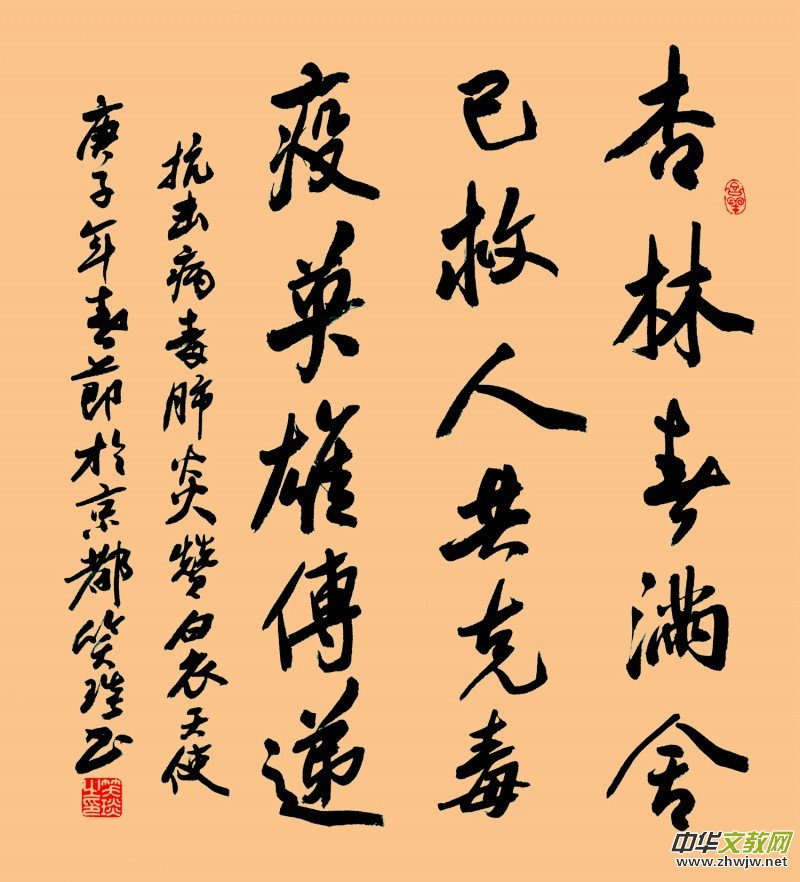 杏林春满舍
己救人共克毒
疫英雄傳递
抗击病毒肺炎赞白衣天使
庚子年春節於京都笑琰书
中华文教网
www.zhwjw.net